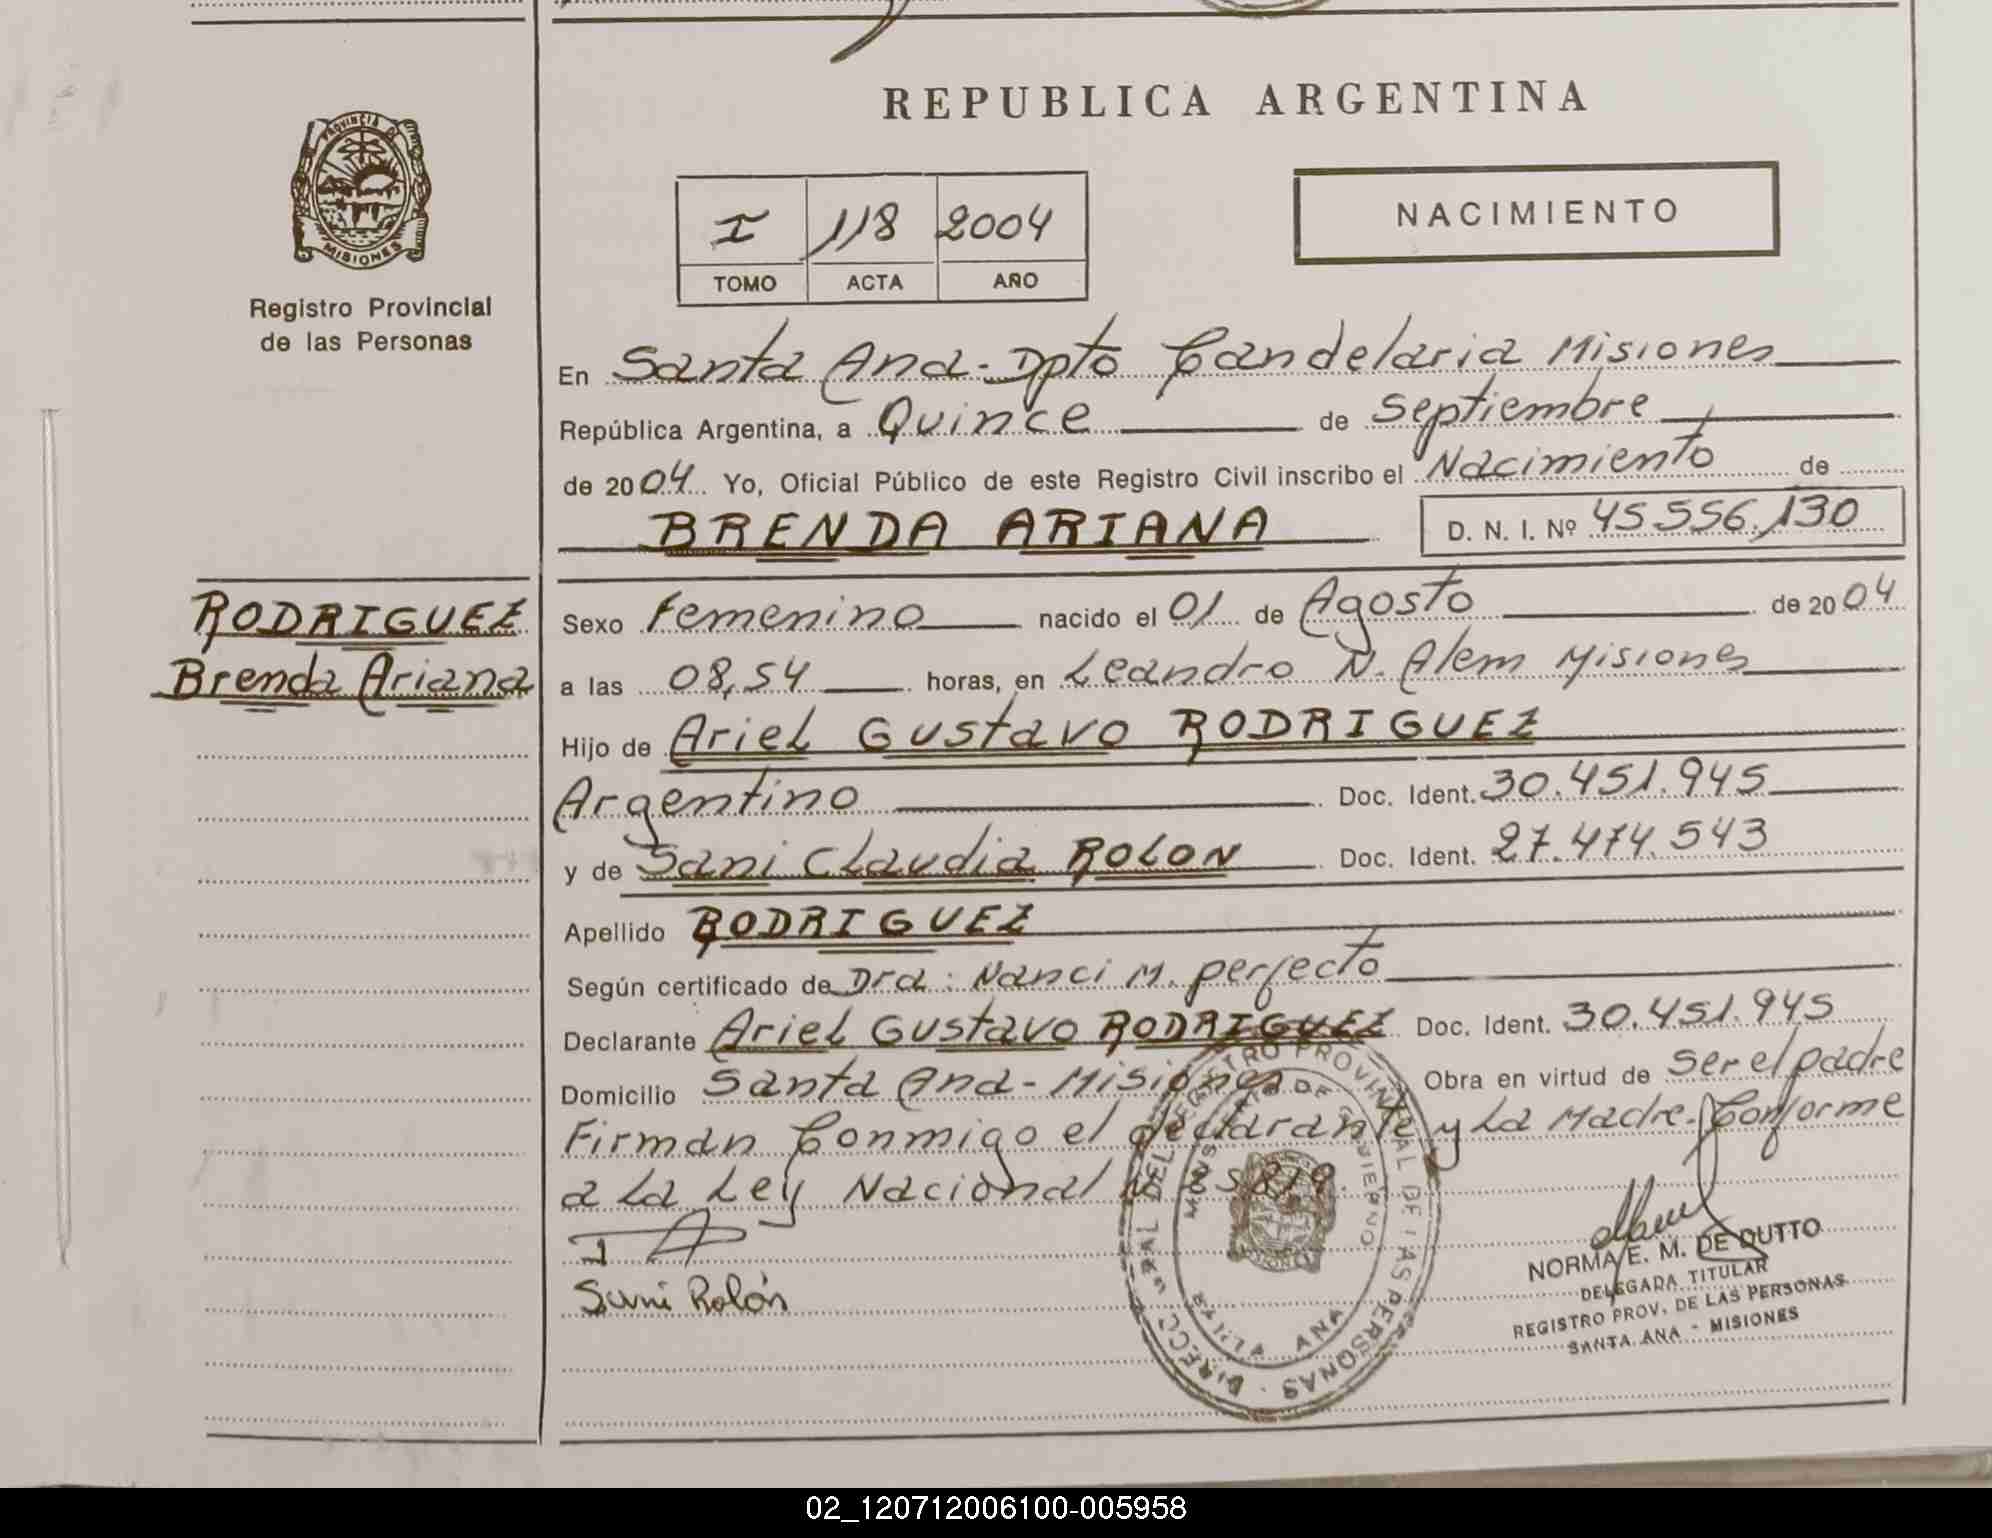 REPUBLICA ARGENTINA
PROVINCIA DE
MISIONES
Registro Provincial
de las Personas
I 118 2004
TOMO ACTA AÑO
NACIMIENTO
En Santa Ana - Dpto Candelaria Misiones
República Argentina, a Quince de Septiembre
de 2004 Yo, Oficial Público de este Registro Civil inscribo el Nacimiento de
BRENDA ARIANA D. N. I. Nº 45.556.130
RODRIGUEZ
Brenda Ariana
Sexo Femenino nacido el 01 de Agosto de 2004
a las 08,54 horas, en Leandro N. Alem Misiones
Hijo de Ariel Gustavo RODRIGUEZ
Argentino Doc. Ident. 30.451.945
y de Sani Claudia ROLON Doc. Ident. 27.474.543
Apellido RODRIGUEZ
Según certificado de Dra: Nanci M. perfecto
Declarante Ariel Gustavo RODRIGUEZ Doc. Ident. 30.451.945
Domicilio Santa Ana - Misiones Obra en virtud de Ser el padre
Firman Conmigo el declarante y La Madre. Conforme
a La Ley Nacional N 25819.
Sani Rolón
NORMA E. M. DE DUTTO
DELEGADA TITULAR
REGISTRO PROV. DE LAS PERSONAS
SANTA ANA - MISIONES
REGISTRO PROVINCIAL DE LAS PERSONAS
MINISTERIO DE GOBIERNO
ANA
02_120712006100-005958